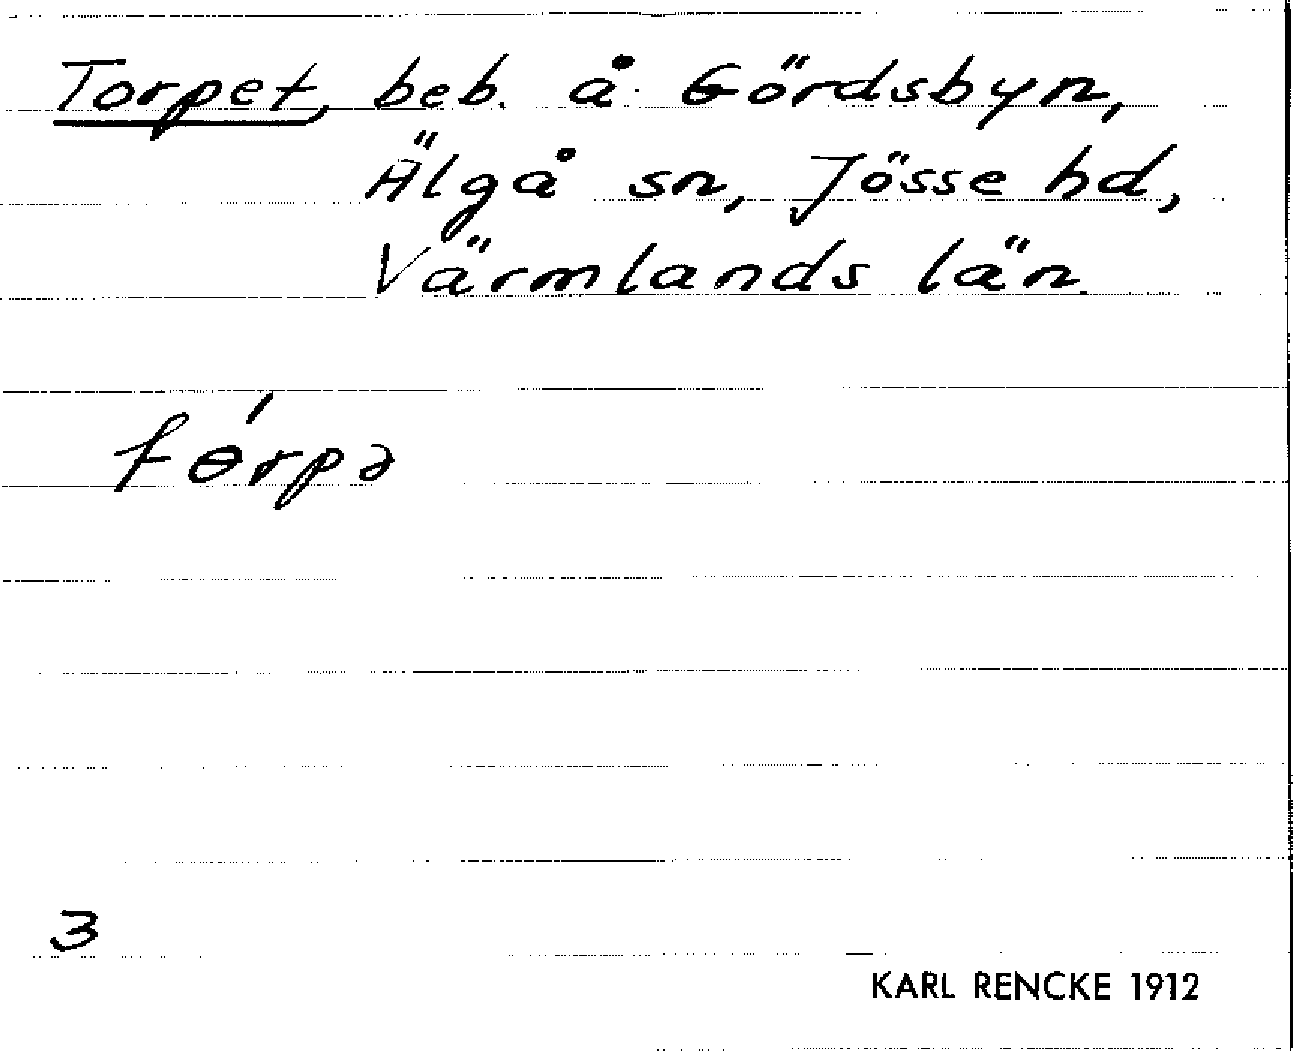 Torpet, beb. å Gördsbyn,
Älgå sn, Jösse hd,
Värmlands län.
tɵ́rpə
3
KARL RENCKE 1912